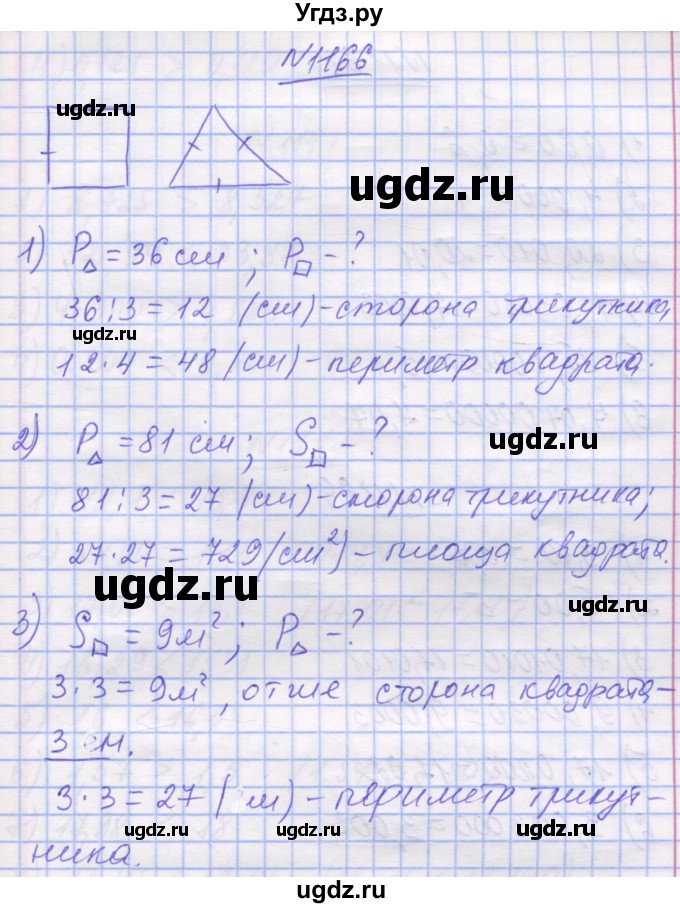 Угдз.ру
N1166
ugdz.ru
ugdz.ru
1) P△ = 36 см ; P□ - ?
36 : 3 = 12 (см) - сторона трикутника,
ugdz.ru
12 · 4 = 48 (см) - периметр квадрата.
2) P△ = 81 см ; S□ - ?
ugdz.ru
81 : 3 = 27 (см) - сторона трикутника;
27 · 27 = 729 (см²) - площа квадрата.
ugdz.ru
ugdz.ru
3) S□ = 9 м² ; P△ - ?
3 · 3 = 9 м², отже сторона квадрата -
ugdz.ru
3 см.
3 · 3 = 27 ( м) - периметр трикут-
ugdz.ru
ugdz.ru
ника.
ugdz.ru